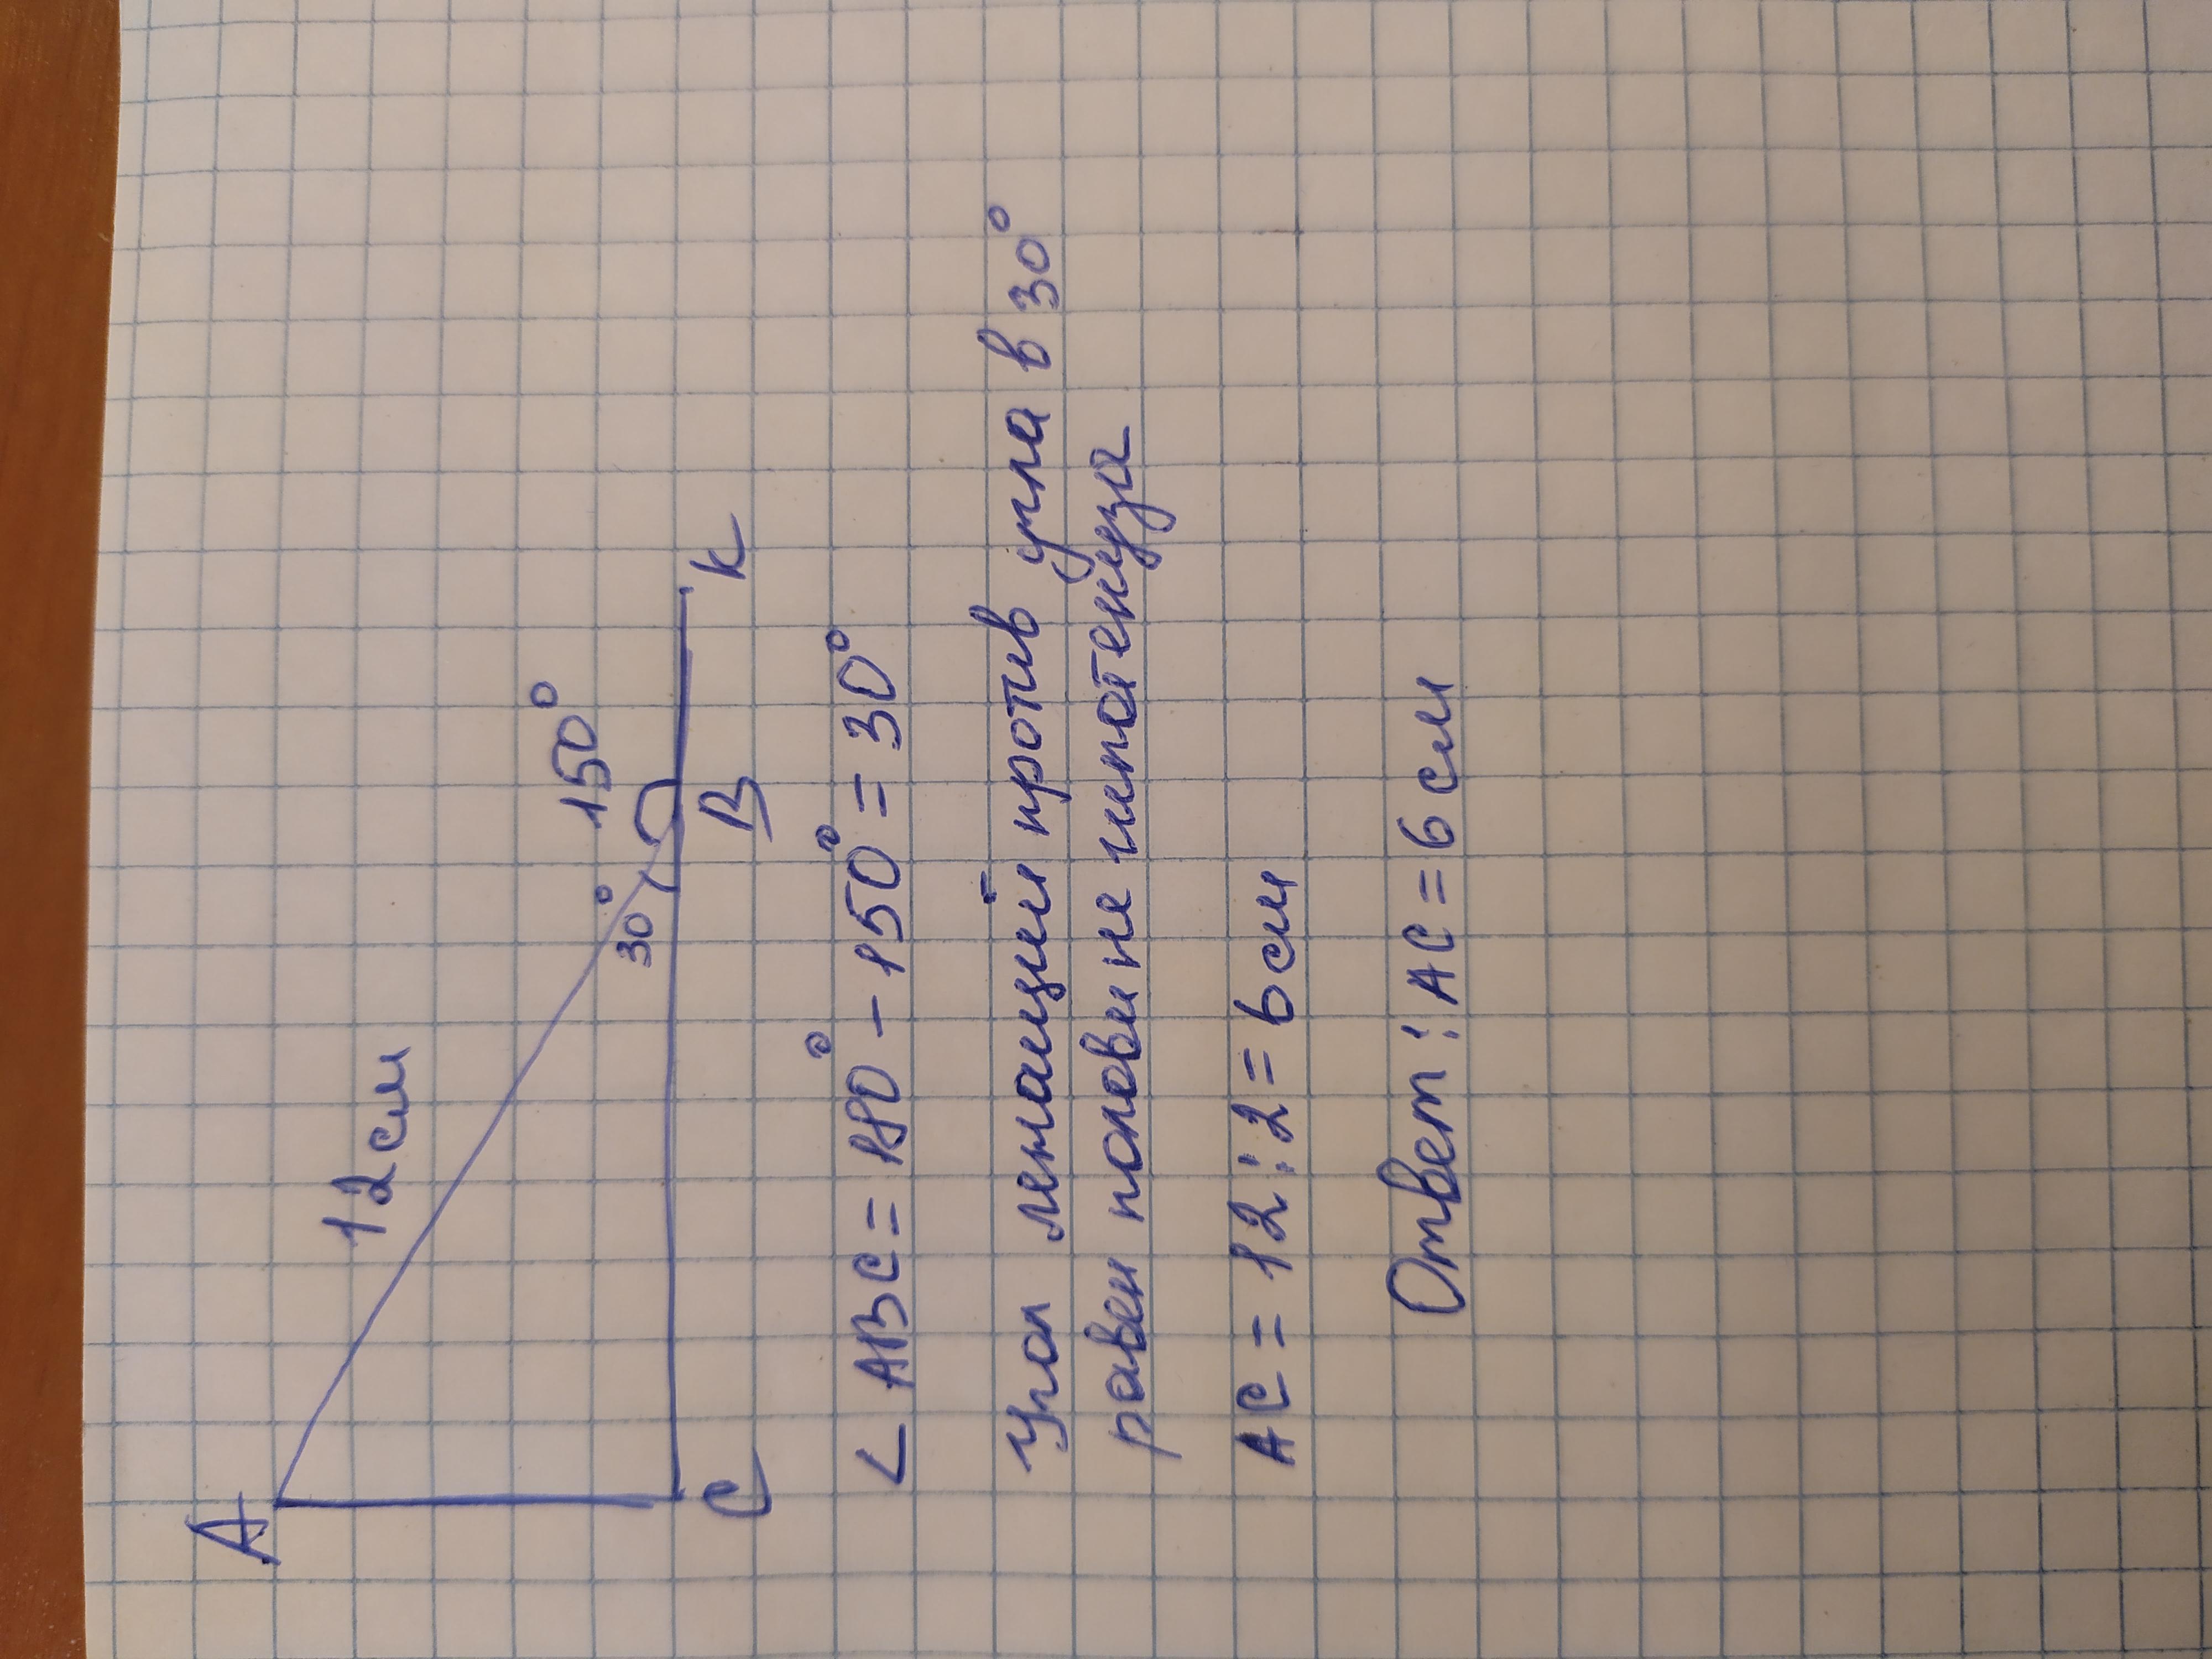 A
12 см
30° 150°
C B K
∠ ABC = 180° - 150° = 30°
Угол лежащий против угла в 30°
равен половине гипотенуза
AC = 12 : 2 = 6 см
Ответ : AC = 6 см